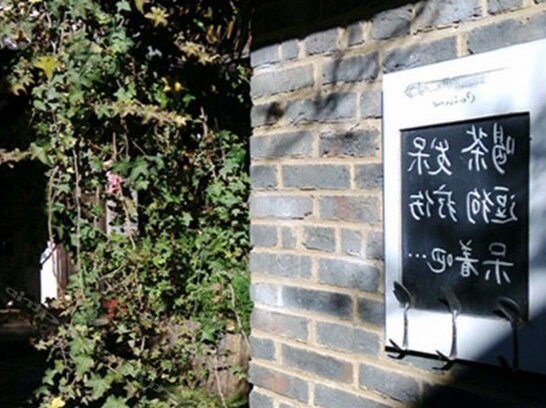 喝茶发呆
逗狗疗伤
呆着吧...